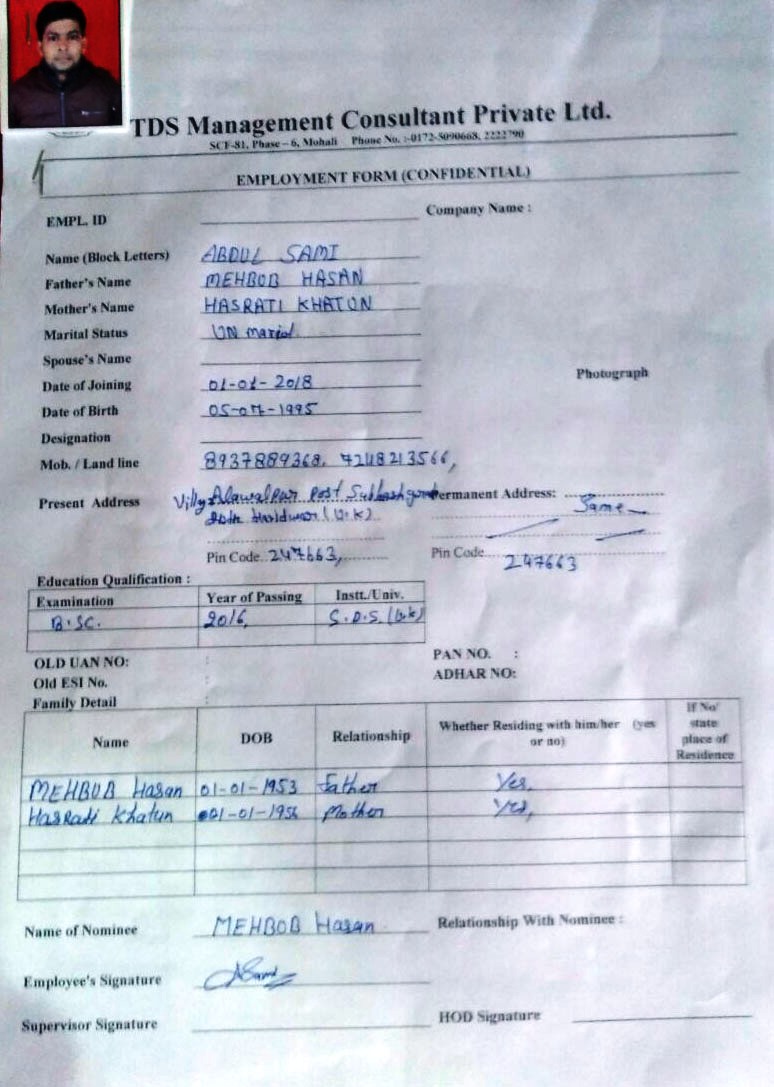 TDS Management Consultant Private Ltd.
SCF-81, Phase – 6, Mohali Phone No. :-0172-5090668, 2222790
EMPLOYMENT FORM (CONFIDENTIAL)
EMPL. ID Company Name :
Name (Block Letters) ABDUL SAMI
Father's Name MEHBOB HASAN
Mother's Name HASRATI KHATUN
Marital Status UN marid.
Spouse's Name
Date of Joining 01-01-2018
Photograph
Date of Birth 05-07-1995
Designation
Mob. / Land line 8937889368, 7248213566,
Present Address Villy Alawalpur Post Permanent Address: Same
Haridwar (U.K)
Pin Code 247663, Pin Code 247663
Education Qualification :
Examination Year of Passing Instt./Univ.
B.SC. 2016, S.D.S. (U.K)
OLD UAN NO: : PAN NO. :
Old ESI No. : ADHAR NO:
Family Detail :
Name DOB Relationship Whether Residing with him/her (yes or no) If No/ state place of Residence
MEHBUB Hasan 01-01-1953 Father Yes,
HasRati Khatun 01-01-1956 Mother Yes,
Name of Nominee MEHBOB Hasan Relationship With Nominee :
Employee's Signature ASami
Supervisor Signature HOD Signature